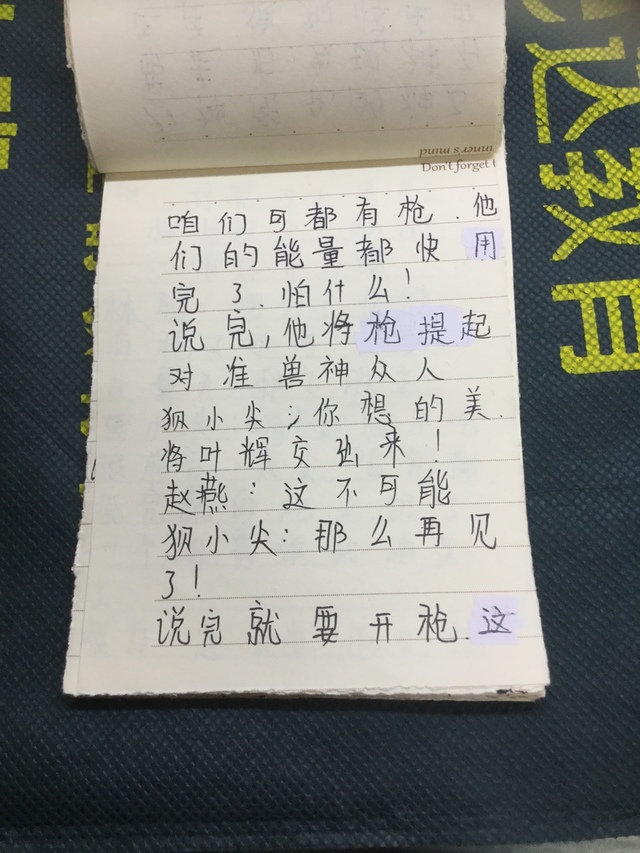 inner's mind
Don't forget t
咱们可都有枪.他
们的能量都快用
完了.怕什么!
说完,他将枪提起
对准兽神众人
狈小尖:你想的美.
将叶辉交出来!
赵燕:这不可能
狈小尖:那么再见
了!
说完就要开枪.这
达教育